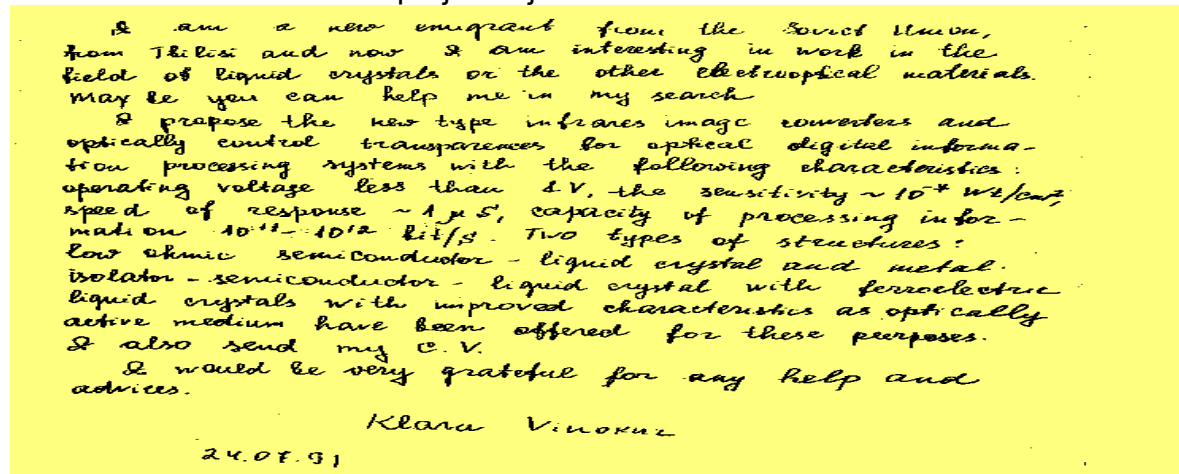 I am a new emigrant from the Soviet Union,
from Tbilisi and now I am interesting in work in the
field of liquid crystals or the other electrooptical materials.
May be you can help me in my search
I propose the new type infrares image converters and
optically control transparences for optical digital informa-
tion processing systems with the following characteristics:
operating voltage less than 1 V, the sensitivity ~ 10⁻⁷ Wt/cm²,
speed of response ~ 1 μs, capacity of processing infor-
mation 10¹¹- 10¹² bit/s. Two types of structures:
low ohmic semiconductor - liquid crystal and metal-
isolator - semiconductor - liquid crystal with ferroelectric
liquid crystals with improved characteristics as optically
active medium have been offered for these purposes.
I also send my C.V.
I would be very grateful for any help and
advices.
Klara Vinokur
24.07.91